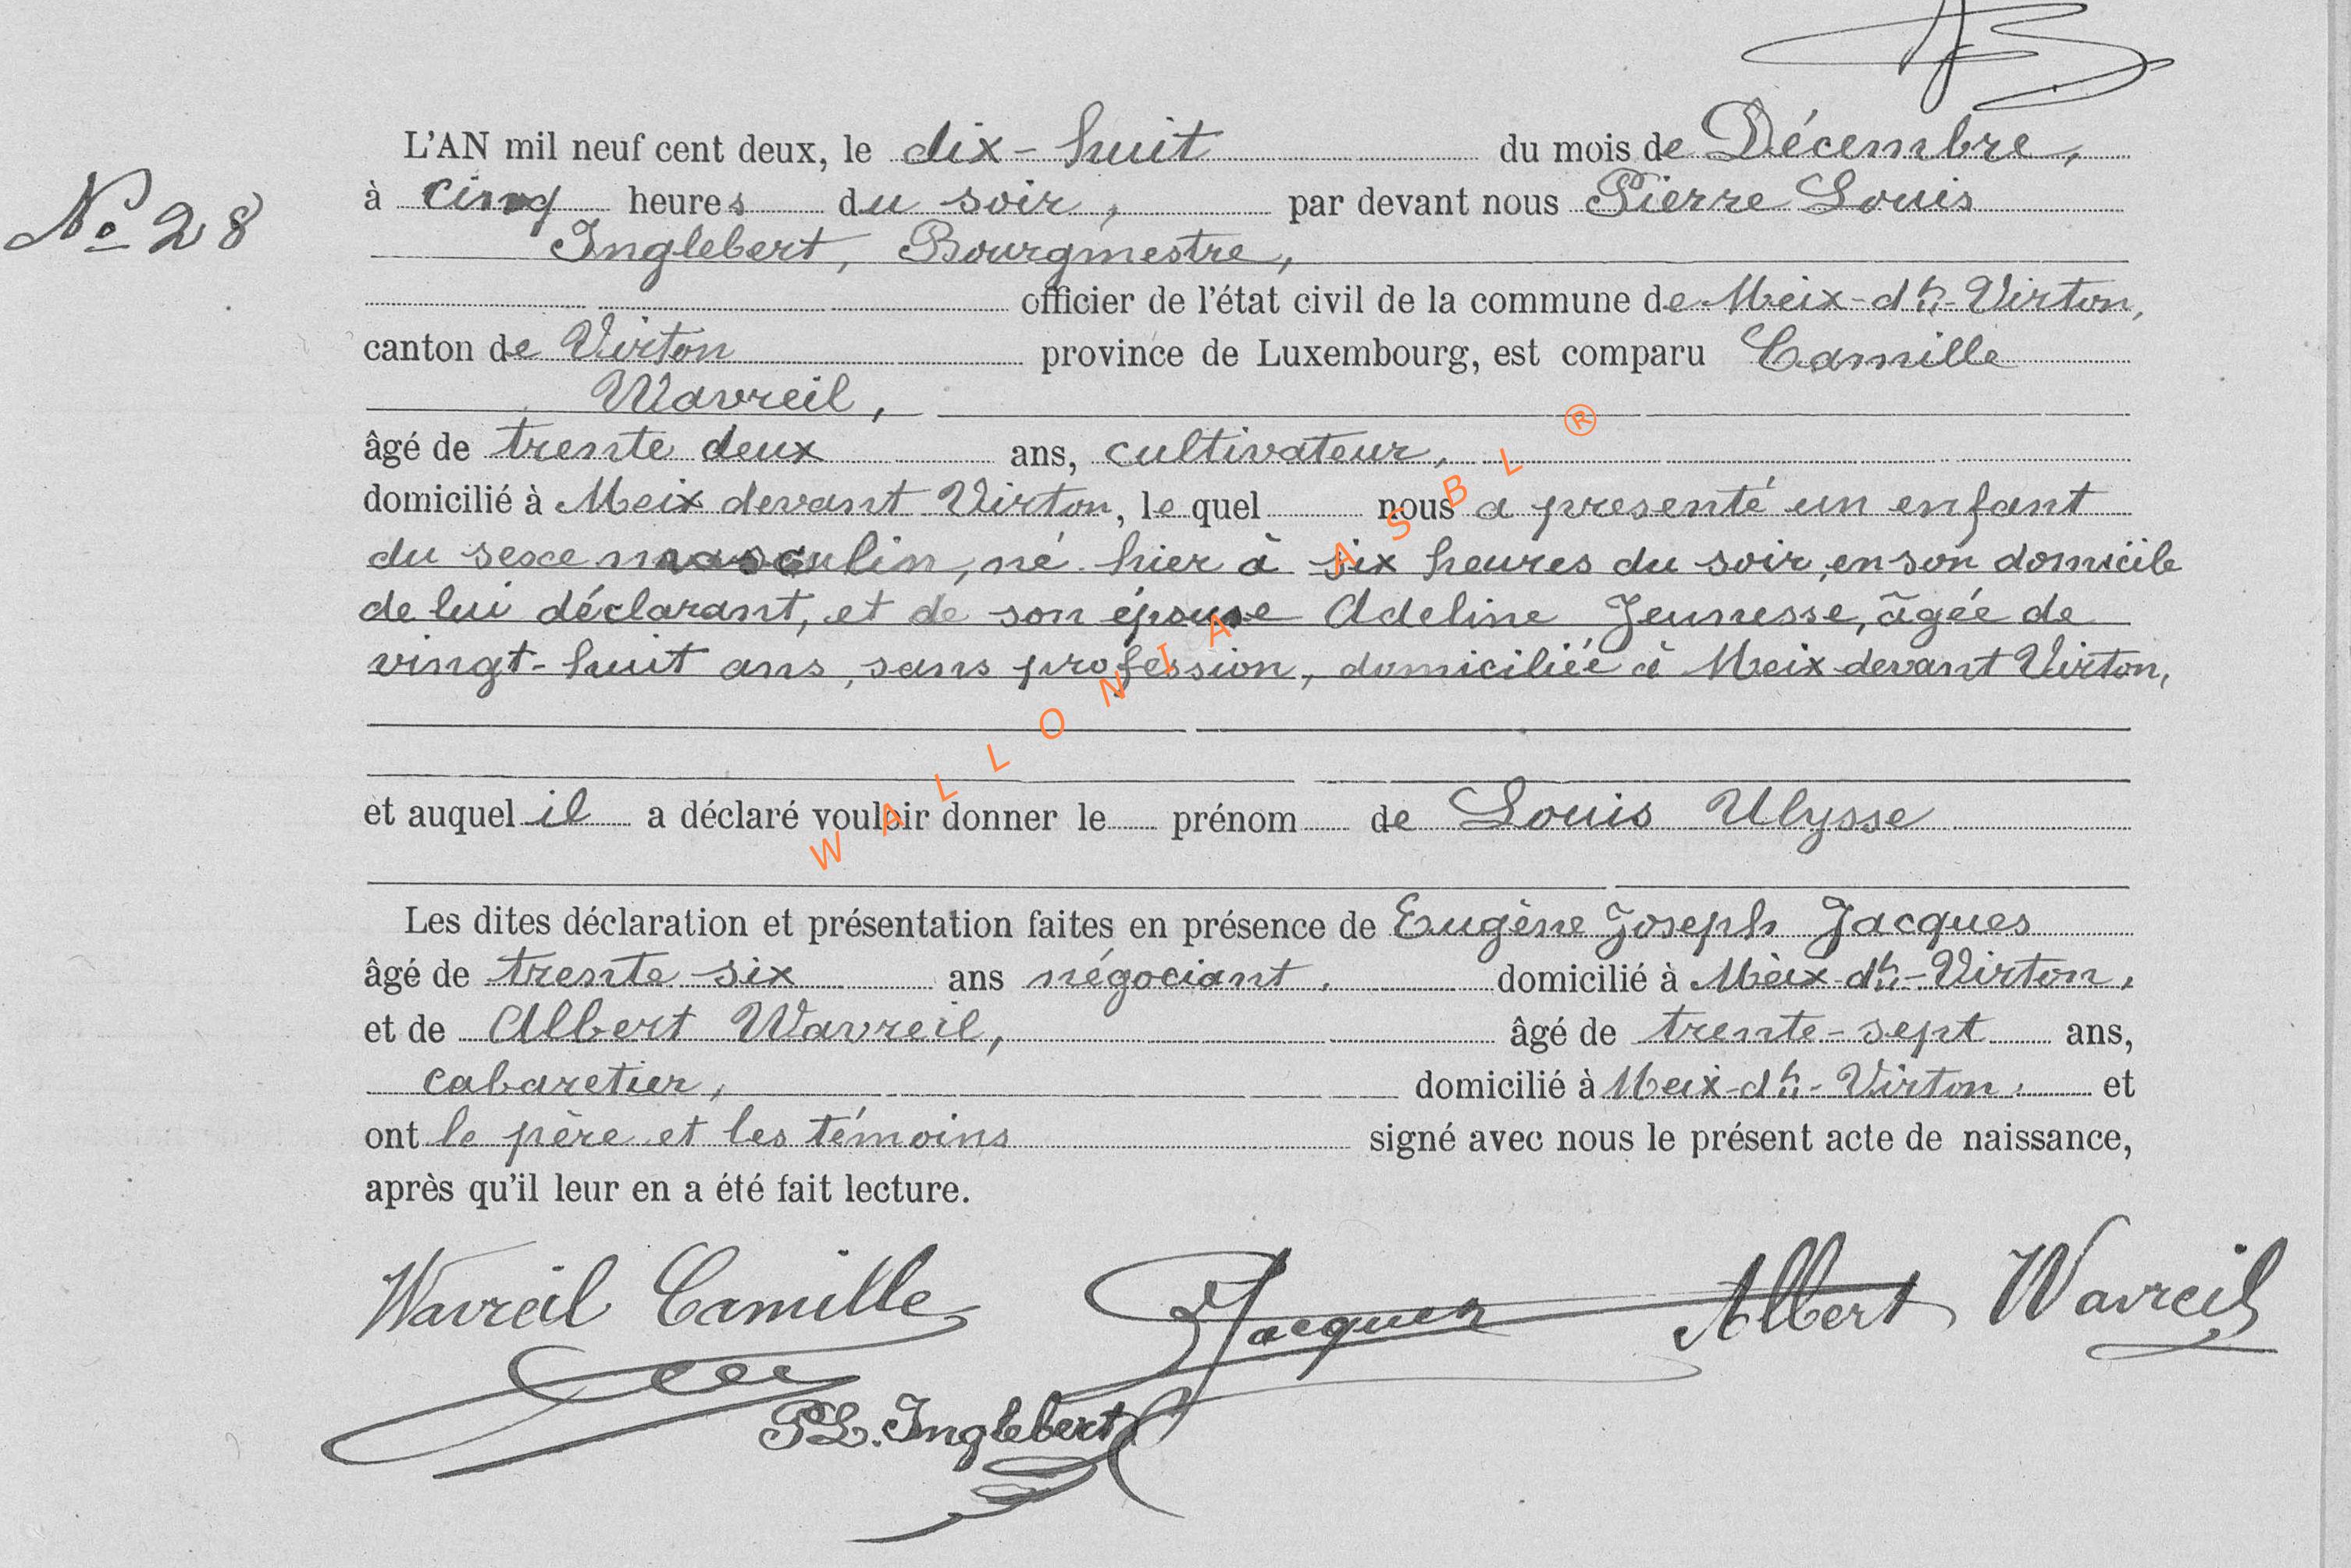 L'AN mil neuf cent deux, le dix-huit du mois de Décembre,
N° 28
à cinq heures du soir, par devant nous Pierre Louis
Inglebert, Bourgmestre,
officier de l'état civil de la commune de Meix-dt-Virton,
canton de Virton province de Luxembourg, est comparu Camille
Wavreil,
âgé de trente deux ans, cultivateur,
domicilié à Meix devant Virton, le quel nous a presenté un enfant
du sexe masculin, né hier à six heures du soir, en son domicile
de lui déclarant, et de son épouse Adeline Jeunesse, âgée de
vingt-huit ans, sans profession, domiciliée à Meix devant Virton,
et auquel il a déclaré vouloir donner le prénom de Louis Ulysse
Les dites déclaration et présentation faites en présence de Eugène Joseph Jacques
âgé de trente six ans négociant, domicilié à Meix-dt-Virton,
et de Albert Wavreil, âgé de trente-sept ans,
cabaretier, domicilié à Meix-dt-Virton, et
ont le père et les témoins signé avec nous le présent acte de naissance,
après qu'il leur en a été fait lecture.
Wavreil Camille Jacques Albert Wavreil
PL. Inglebert
WALLONIA ASBL ®